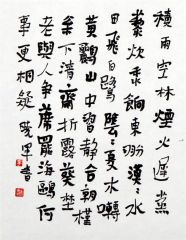 積雨空林煙火遲蒸
藜炊黍餉東菑漠〻水
田飛白鷺陰〻夏木囀
黃鸝山中習靜觀朝槿
松下清齋折露葵野
老與人爭席罷海鷗何
事更相疑 書